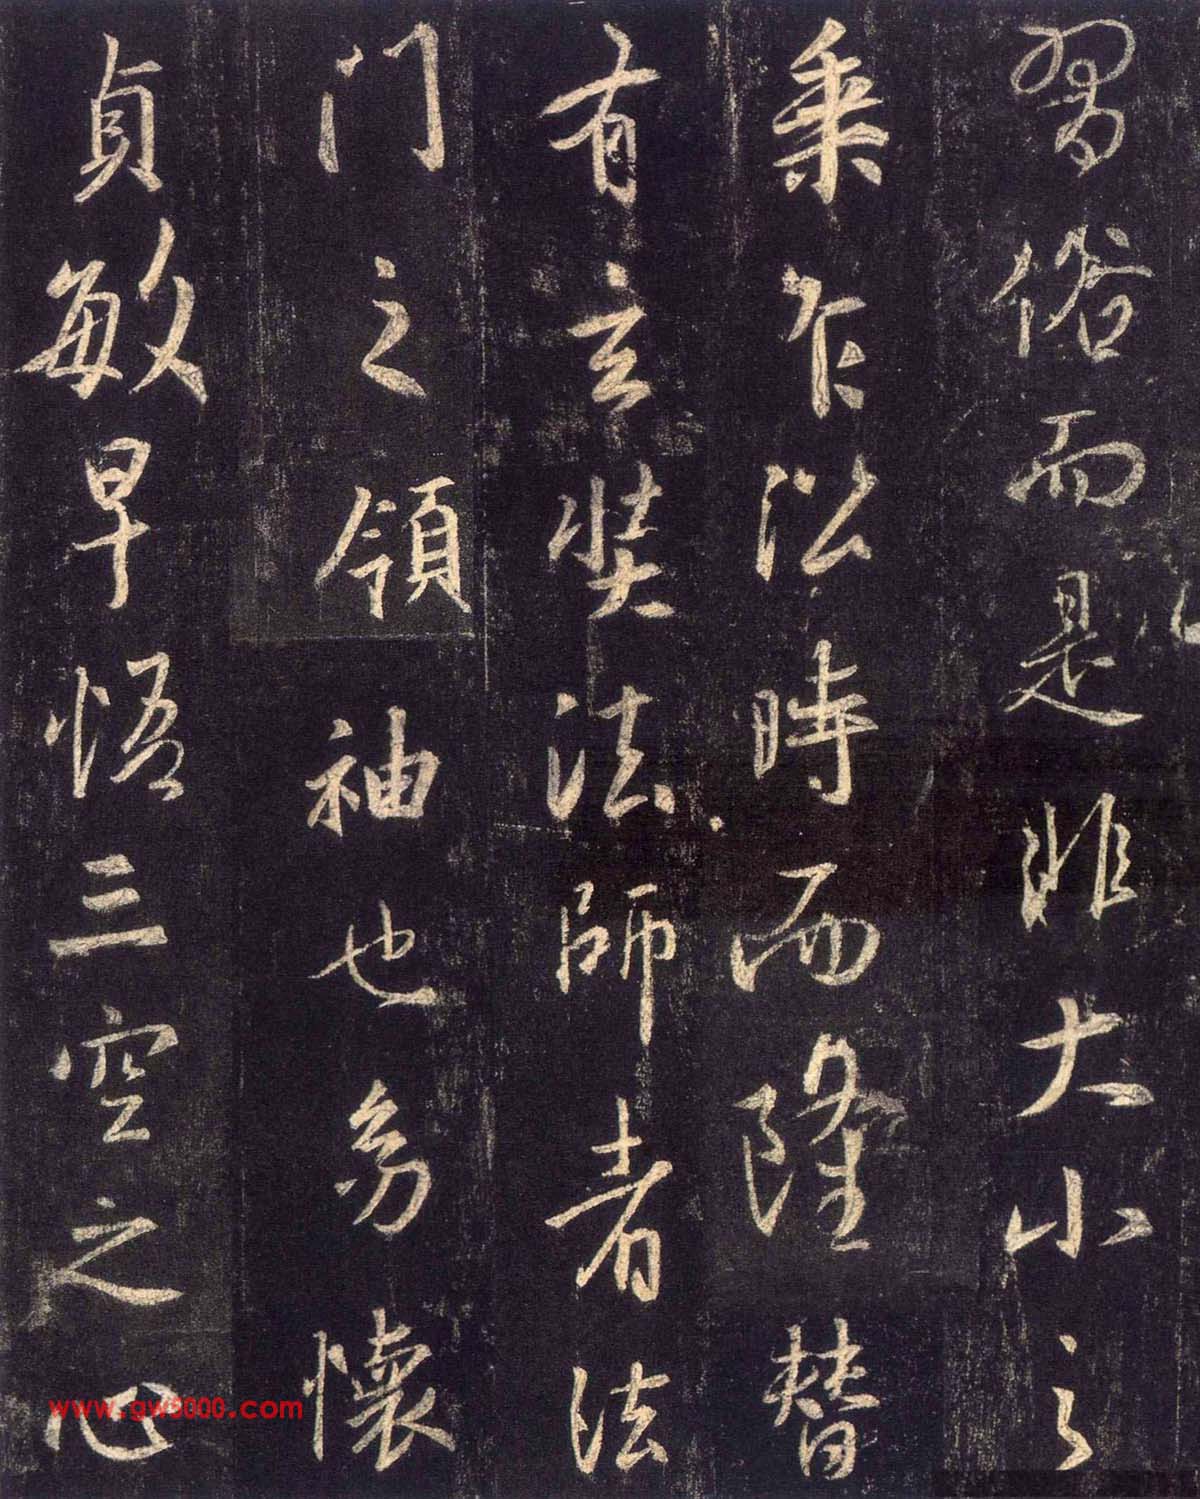 習俗而是非大小之
乘乍㳂時而隆替
有玄奘法師者法
门之領袖也㓜懷
貞敏早悟三空之心
www.gw5000.com